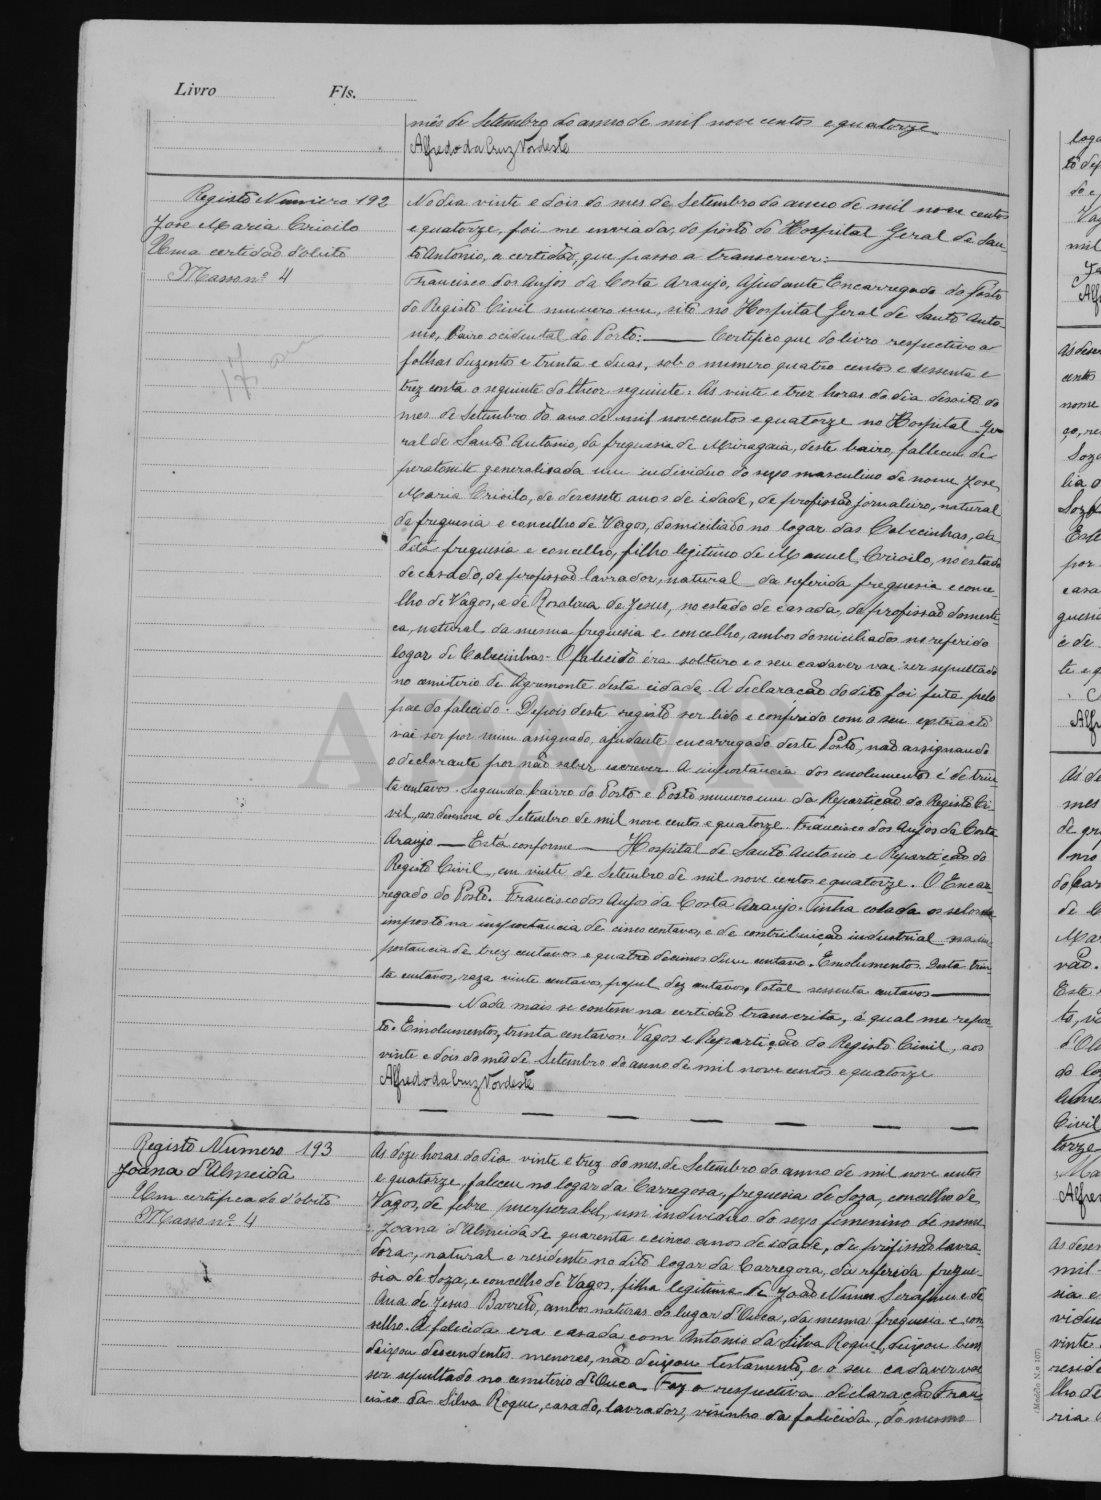 Livro Fls.
mês de Setembro do anno de mil nove centos e quatorze
Alfredo da Cruz Nordeste
Registo Numero 192
José Maria Crioilo
Uma certidão d'obito
Masso nº 4
No dia vinte e dois do mes de Setembro do anno de mil nove centos
e quatorze, foi me enviada, do posto do Hospital Geral de San-
to Antonio, a certidão, que passo a transcrever:
Francisco dos Anjos da Costa Araujo, Ajudante Encarregado do Posto
do Registo Civil numero um, sito no Hospital Geral de Santo Anto-
nio, Bairo ocidental do Porto: Certifico que do livro respectivo a
folhas duzentos e trinta e duas, sob o numero quatro centos e sessenta e
trez consta o seguinte do theor seguinte: Ás vinte e trez horas do dia desoito do
mes de Setembro do ano de mil novecentos e quatorze no Hospital Ge-
ral de Santo Antonio, da freguesia de Miragaia, deste bairo, falleceu de
peratonite generalisada um individuo do sexo masculino de nome José
Maria Crioilo, de desessete anos de idade, de profissão jornaleiro, natural
da freguesia e concelho de Vagos, domiciliado no logar das Cabecinhas, da
dita freguesia e concelho, filho legitimo de Manuel Crioilo, no estado
de casado, de profissão lavrador, natural da referida freguesia e conce-
lho de Vagos, e de Rosalina de Jesus, no estado de casada, de profissão domesti-
ca, natural da mesma freguesia e concelho, ambos domiciliados no referido
logar de Cabecinhas. O falecido éra solteiro e o seu cadaver vae ser sepultado
no cemiterio de Agramonte desta cidade. A declaração do dito foi feita pelo
pae do falecido. Depois deste registo ser lido e conferido com o seu extracto
vai ser por mim assignado, ajudante encarregado deste Posto, não assignando
o declarante por não saber escrever. A importancia dos emolumentos é de trin-
ta centavos. Segundo bairro do Porto e Posto numero um da Repartição do Registo Ci-
vil, aos desenove de Setembro de mil nove centos e quatorze. Francisco dos Anjos da Costa
Araujo — Está conforme — Hospital de Santo Antonio e Repartição do
Registo Civil, em vinte de Setembro de mil nove centos e quatorze. O Encar-
regado do Posto. Francisco dos Anjos da Costa Araujo. Tinha colada os selos de
imposto na importancia de cinco centavos, e de contribuição industrial na im-
portancia de trez centavos e quatro decimos dum centavo. Emolumentos. Desta trin-
ta centavos, raza vinte centavos, papel dez centavos, Total sessenta centavos
Nada mais se contem na certidão transcrita, á qual me repor-
to. Emolumentos, trinta centavos. Vagos e Repartição do Registo Civil, aos
vinte e dois do mês de Setembro do anno de mil nove centos e quatorze
Alfredo da Cruz Nordeste
Registo Numero 193
Joana d'Almeida
Um certificado d'obito
Masso nº 4
As doze horas do dia vinte e trez do mes de Setembro do anno de mil nove centos
e quatorze, faleceu no logar da Carregosa, freguesia de Soza, concelho de
Vagos, de febre puerperabel, um individuo do sexo femenino de nome
Joana d'Almeida de quarenta e cinco anos de idade, de profissão lavra-
dora, natural e residente no dito logar da Carregosa, da referida fregue-
sia de Soza, e concelho de Vagos, filha legitima de João Nunes Serafim e de
Ana de Jesus Barreto, ambos naturas do lugar d'Ouca, da mesma freguesia e con-
selho. A falecida era casada com Antonio da Silva Roque, deixou bens
deixou descendentes menores, não deixou testamento, e o seu cadaver vae
ser sepultado no cemiterio d'Ouca. Faz a respectiva declaração Fran-
cisco da Silva Roque, casado, lavrador, visinho da falecida, do mesmo
ADAVR
(Modelo N.º 107)